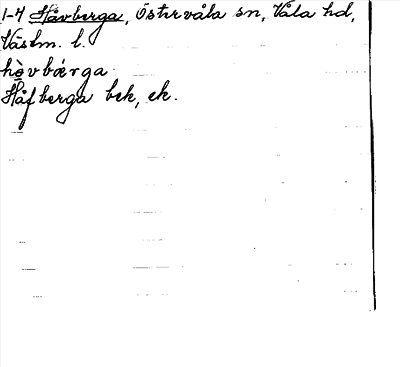 1-4 Håvberga, Östervåla sn, Våla hd,
Västm. l.
hèvbárga
Håfberga bek, ek.